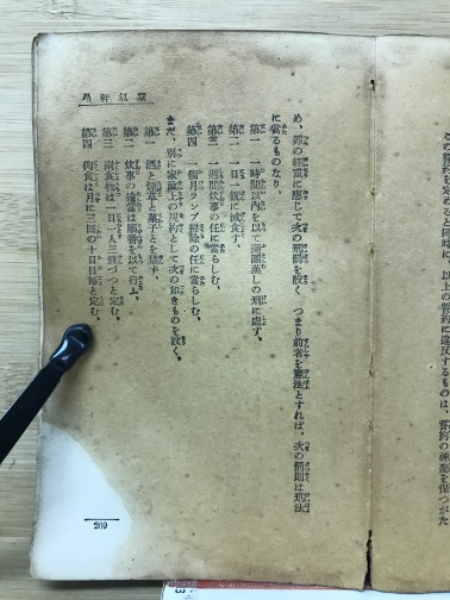 この誓約を定めると同時に、以上の誓約に違反するものは、誓約の神聖を保つがた
め、罪の軽重に応じて次の刑罰を設く つまり前者を憲法とすれば、次の罰則は刑法
に當るものなり。
第一 一時間以内を以て蒲團蒸しの刑に處す。
第二 一日一飯に減食す。
第三 一週間炊事の任に當らしむ。
第四 一個月ランプ掃除の任に當らしむ。
まだ、別に家政上の規約として次の如きものを設く。
第一 酒と煙草と菓子とを禁ず。
第二 炊事の當番は順番を以て行ふ。
第三 副食物は一日一人三錢づつと定む。
第四 肉食は月に三回の十日目每と定む。
209